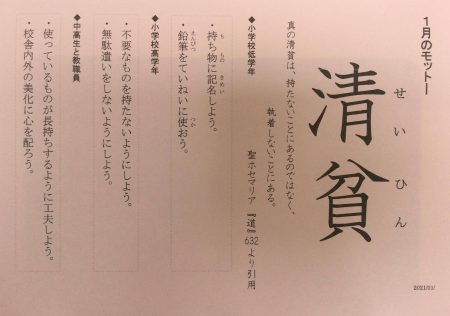 1月のモットー
せいひん
清貧
真の清貧は、持たないことにあるのではなく、
執着しないことにある。
聖ホセマリア 『道』632より引用
◆小学校低学年
もちものきめい
・持ち物に記名しよう。
えんぴつつか
・鉛筆をていねいに使おう。
◆小学校高学年
・不要なものを持たないようにしよう。
・無駄遣いをしないようにしよう。
◆中高生と教職員
・使っているものが長持ちするように工夫しよう。
・校舎内外の美化に心を配ろう。
2021/01/